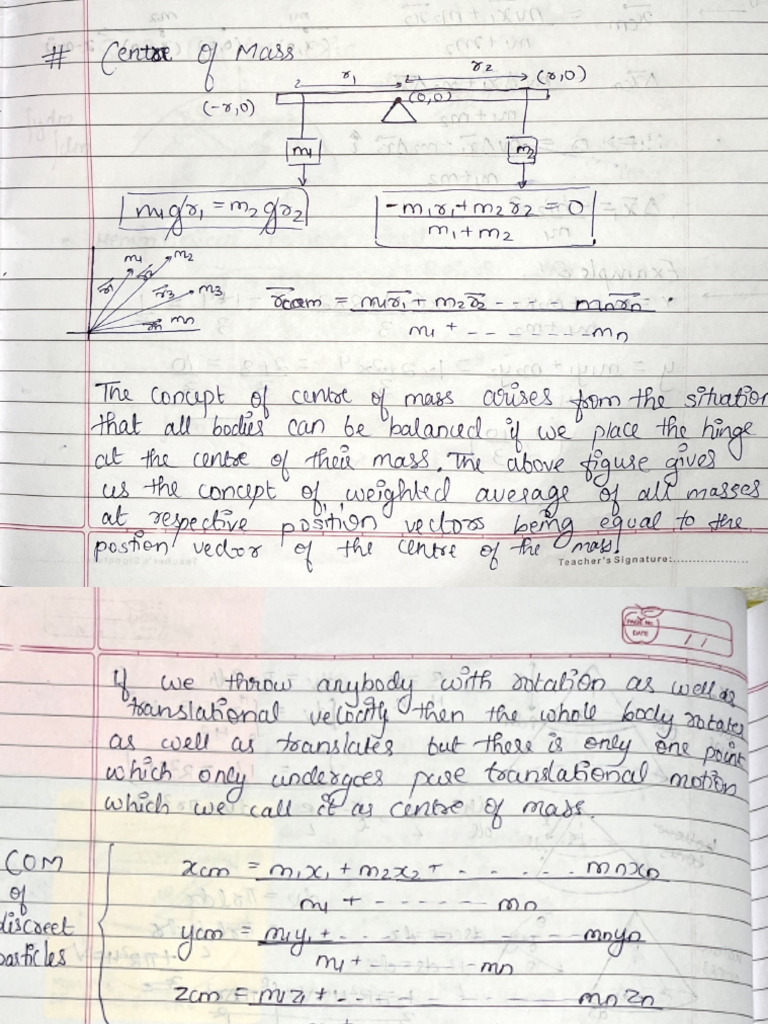 # Centre of Mass
r₁ r₂ (r,0)
(-r,0) (0,0)
m₁ m₂
m₁gr₁ = m₂gr₂
-m₁r₁+m₂r₂ = 0
m₁+m₂
m₁ m₂
r₁ r₂ r₃ m₃
rn mn
rcom = m₁r₁ + m₂r₂ - - - - mnrn
m₁ + - - - - - - - mn
The concept of centre of mass arises from the situation
that all bodies can be balanced if we place the hinge
at the centre of their mass. The above figure gives
us the concept of weighted average of all masses
at respective position vectors being equal to the
postion vector of the centre of the mass.
Teacher's Signature:....................
PAGE NO.
DATE / /
If we throw anybody with rotation as well as
translational velocity then the whole body rotates
as well as translates but there is only one point
which only undergoes pure translational motion
which we call it as centre of mass.
COM
of
discreet
particles
xcm = m₁x₁ + m₂x₂ + - - - - - mnxn
m₁ + - - - - - - mn
ycm = m₁y₁ + - - - - - - mnyn
m₁ + - - - - - mn
zcm = m₁z₁ + - - - - - - mnzn